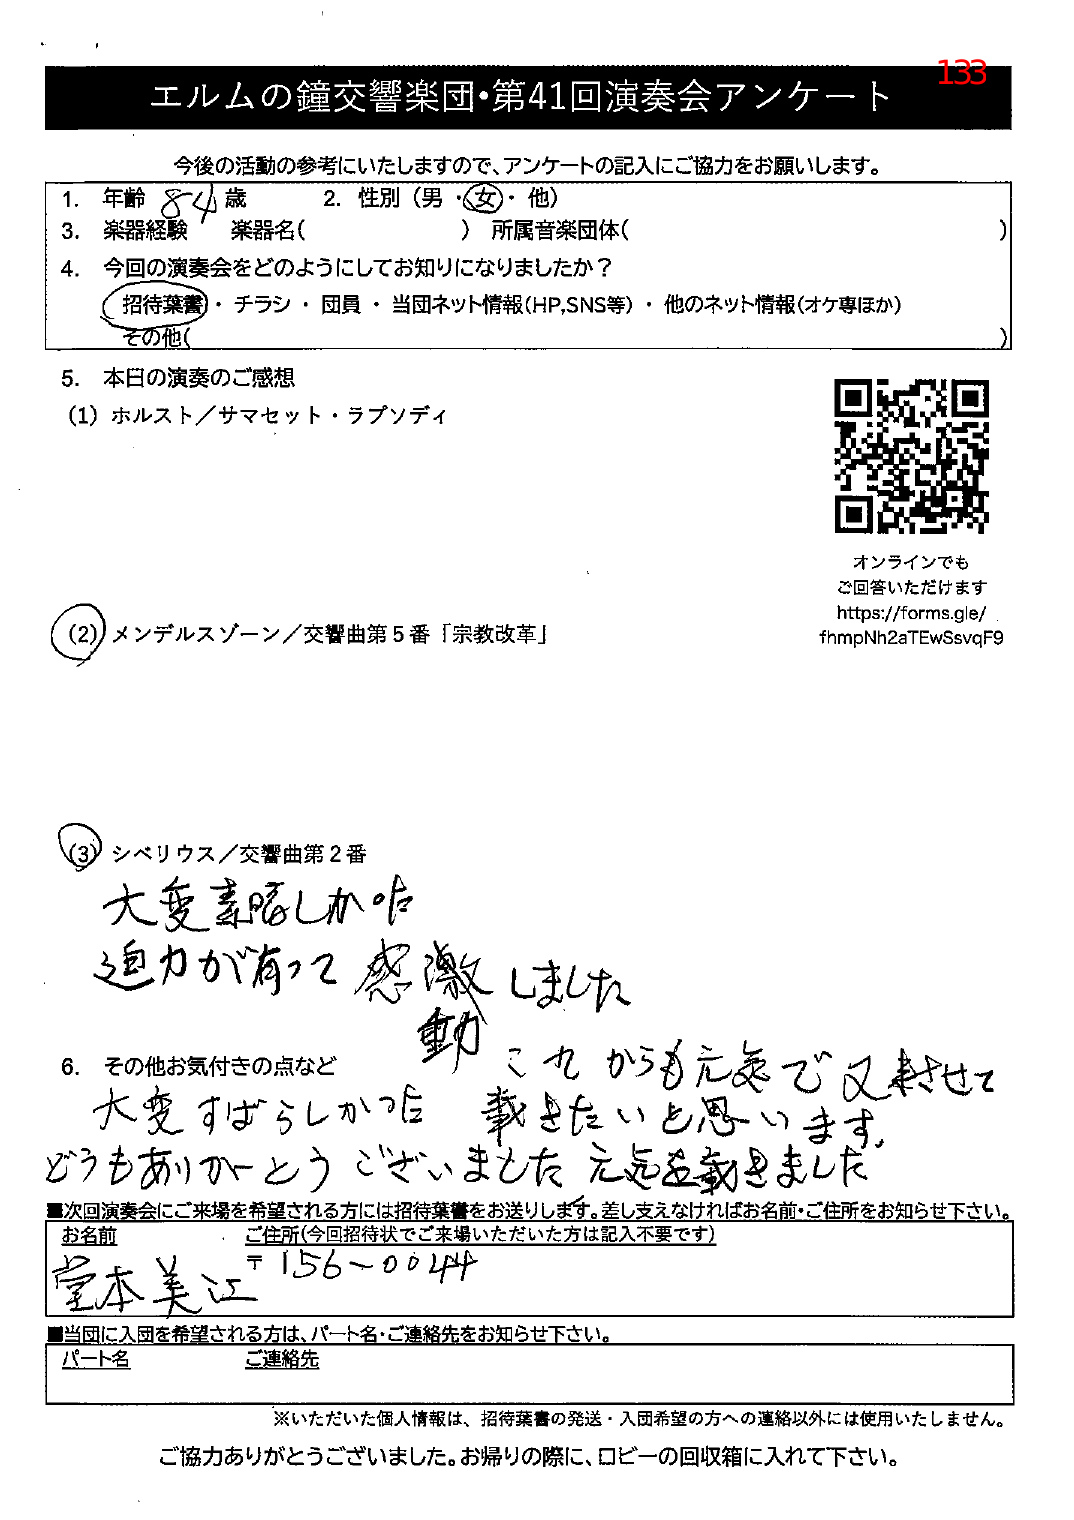 133
エルムの鐘交響楽団・第41回演奏会アンケート
今後の活動の参考にいたしますので、アンケートの記入にご協力をお願いします。
1. 年齢 84 歳 2. 性別（男・女・他）
3. 楽器経験 楽器名( ) 所属音楽団体( )
4. 今回の演奏会をどのようにしてお知りになりましたか？
招待葉書・チラシ・団員・当団ネット情報(HP,SNS等)・他のネット情報(オケ専ほか)
その他( )
5. 本日の演奏のご感想
(1) ホルスト／サマセット・ラプソディ
オンラインでも
ご回答いただけます
https://forms.gle/
fhmpNh2aTEwSsvqF9
(2) メンデルスゾーン／交響曲第５番「宗教改革」
(3) シベリウス／交響曲第２番
大変素晴しかった
迫力が有って感激しました
動
6. その他お気付きの点など
これからも元気で又来させて
大変すばらしかった 載きたいと思います。
どうもありがーとうございました 元気を載きました
■次回演奏会にご来場を希望される方には招待葉書をお送りします。差し支えなければお名前・ご住所をお知らせ下さい。
お名前 ご住所(今回招待状でご来場いただいた方は記入不要です)
堂本美江 〒156-0044
■当団に入団を希望される方は、パート名・ご連絡先をお知らせ下さい。
パート名 ご連絡先
※いただいた個人情報は、招待葉書の発送・入団希望の方への連絡以外には使用いたしません。
ご協力ありがとうございました。お帰りの際に、ロビーの回収箱に入れて下さい。